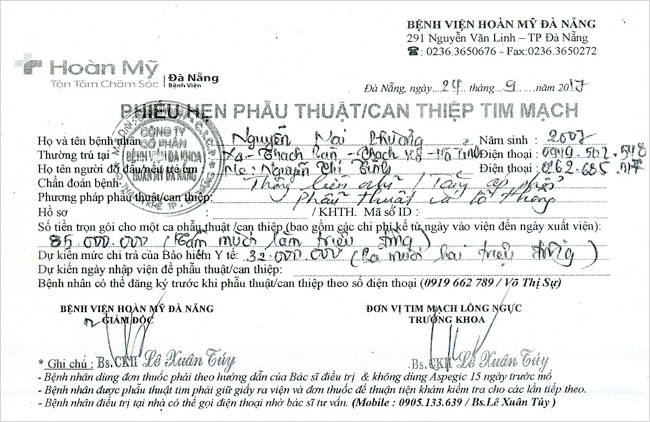 BỆNH VIỆN HOÀN MỸ ĐÀ NẴNG
291 Nguyễn Văn Linh – TP Đà Nẵng
☎: 0236.3650676 - Fax:0236.3650272
Hoàn Mỹ Đà Nẵng
Tận Tâm Chăm Sóc Bệnh viện
Đà Nẵng, ngày 24 tháng 9 năm 2017
PHIẾU HẸN PHẪU THUẬT/CAN THIỆP TIM MẠCH
CÔNG TY
CỔ PHẦN
BỆNH VIỆN ĐA KHOA
HOÀN MỸ ĐÀ NẴNG
Họ và tên bệnh nhân Nguyễn Phương Năm sinh : 2007
Thường trú tại Điện thoại :
Họ tên người đỡ đầu/nếu trẻ em : Nguyễn Thị Điện thoại :
Chẩn đoán bệnh: Thông liên
Phương pháp phẫu thuật/can thiệp: Phẫu thuật vá lỗ thông
Hồ sơ / KHTH. Mã số ID :
Số tiền trọn gói cho một ca phẫu thuật /can thiệp (bao gồm các chi phí kể từ ngày vào viện đến ngày xuất viện):
85.000.000 (Tám mươi lăm triệu đồng)
Dự kiến mức chi trả của Bảo hiểm Y tế: 32.000.000 (Ba mươi hai triệu đồng)
Dự kiến ngày nhập viện để phẫu thuật/can thiệp:
Bệnh nhân có thể đăng ký trước khi phẫu thuật/can thiệp theo số điện thoại (0919 662 789 / Võ Thị Sự)
BỆNH VIỆN HOÀN MỸ ĐÀ NẴNG ĐƠN VỊ TIM MẠCH LỒNG NGỰC
GIÁM ĐỐC TRƯỞNG KHOA
* Ghi chú : Bs.CKII Lê Xuân Túy Bs.CKII Lê Xuân Túy
- Bệnh nhân dùng đơn thuốc phải theo hướng dẫn của Bác sĩ điều trị & không dùng Aspegic 15 ngày trước mổ
- Bệnh nhân được phẫu thuật tim phải giữ giấy ra viện và đơn thuốc để thuận tiện khám kiểm tra cho các lần tiếp theo.
- Bệnh nhân điều trị tại nhà có thể gọi điện thoại nhờ bác sĩ tư vấn. (Mobile : 0905.133.639 / Bs.Lê Xuân Túy )